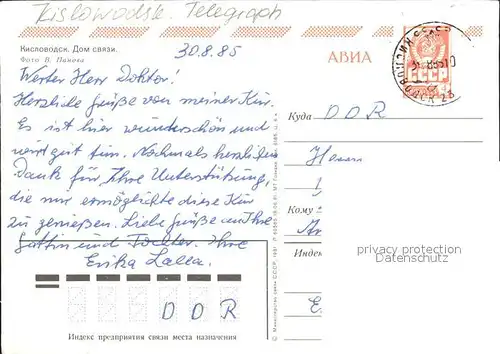 Kislowodsk. Telegraph
Кисловодск. Дом связи.
Фото В. Панова
30.8.85
АВИА
СССР
Werter Herr Doktor!
Herzliche Grüße von meiner Kur.
Es ist hier wunderschön und
wird gut tun. Nochmals herzlichen
Dank für Ihre Unterstützung,
die mir ermöglichte diese Kur
zu genießen. Liebe Grüße an Ihre
Gattin und Tochter. Ihre
Erika
Куда DDR
Herrn
Кому
Индек
privacy protection
watermark
DDR
Индекс предприятия связи места назначения